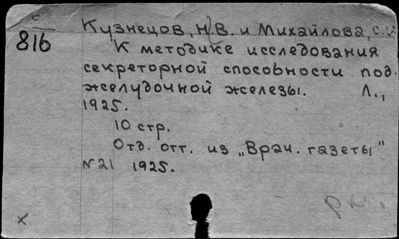 816
Кузнецов, Н.В. и Михайлова, С.
К методике исследования
секреторной способности под-
желудочной железы. Л.,
1925.
10 стр.
Отд. отт. из "Врач. газеты"
№21 1925.